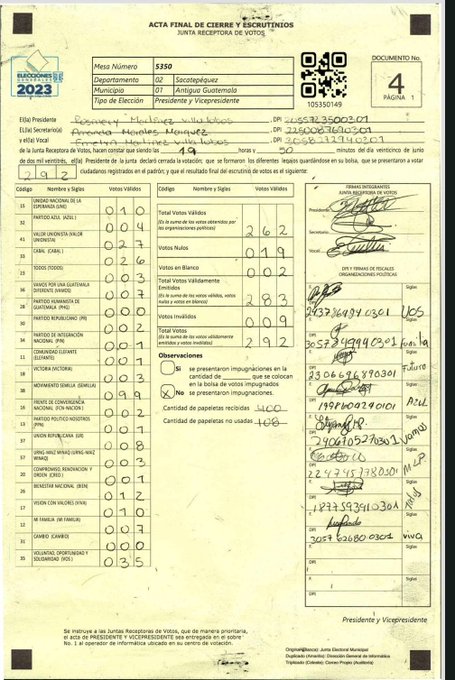 ACTA FINAL DE CIERRE Y ESCRUTINIOS
JUNTA RECEPTORA DE VOTOS
ELECCIONES
GENERALES
2023
Mesa Número 5350
Departamento 02 Sacatepéquez
Municipio 01 Antigua Guatemala
Tipo de Elección Presidente y Vicepresidente
105350149
DOCUMENTO No.
4
PÁGINA 1
El(la) Presidente Rosmery Martínez Villalobos, DPI
El(la) Secretario(a) Amanda Morales Marquez, DPI 2250087690301
El(la) Vocal Emelyn Martinez Villalobos, DPI
de la Junta Receptora de Votos, hacen constar que siendo las 19 horas y 50 minutos del día veinticinco de junio
de dos mil veintitrés, el(la) Presidente de la junta declaró cerrada la votación; que se formaron los diferentes legajos quedándose en su bolsa, que se presentaron a votar
292 ciudadanos registrados en el padrón; y que el resultado final del escrutinio de votos es el siguiente:
Código Nombre y Siglas Votos Válidos
UNIDAD NACIONAL DE LA ESPERANZA (UNE) 010
PARTIDO AZUL (AZUL) 004
VALOR UNIONISTA (VALOR UNIONISTA) 027
CABAL (CABAL) 026
TODOS (TODOS) 003
VAMOS POR UNA GUATEMALA DIFERENTE (VAMOS) 007
PARTIDO HUMANISTA DE GUATEMALA (PHG) 000
PARTIDO REPUBLICANO (PR)
PARTIDO DE INTEGRACIÓN NACIONAL (PIN) 001
COMUNIDAD ELEFANTE (ELEFANTE) 001
VICTORIA (VICTORIA) 000
MOVIMIENTO SEMILLA (SEMILLA) 099
FRENTE DE CONVERGENCIA NACIONAL (FCN-NACION)
PARTIDO POLITICO NOSOTROS (PPN) 001
UNION REPUBLICANA (UR) 008
URNG-MAIZ WINAQ (URNG-MAIZ WINAQ) 003
COMPROMISO, RENOVACIÓN Y ORDEN (CREO)
BIENESTAR NACIONAL (BIEN) 012
VISION CON VALORES (VIVA) 010
MI FAMILIA (MI FAMILIA) 007
CAMBIO (CAMBIO) 000
VOLUNTAD, OPORTUNIDAD Y SOLIDARIDAD (VOS) 035
Votos Válidos
Total Votos Válidos
(Es la suma de los votos obtenidos por las organizaciones políticas)
262
Votos Nulos 019
Votos en Blanco 002
Total Votos Válidamente Emitidos
(Es la suma de los votos válidos, votos nulos y votos en blanco)
283
Votos Inválidos 009
Total Votos
(Es la suma de los votos válidamente emitidos y votos inválidos)
292
Observaciones
Si se presentaron impugnaciones en la cantidad de ____ que se colocan en la bolsa de votos impugnados
X No se presentaron impugnaciones
Cantidad de papeletas recibidas 400
Cantidad de papeletas no usadas 108
FIRMAS INTEGRANTES
JUNTA RECEPTORA DE VOTOS
Presidente
Secretario
Vocal
DPI Y FIRMAS DE FISCALES
ORGANIZACIONES POLÍTICAS
VOS
Futuro
Azul
Vamos
MLP
Todos
Viva
Siglas
DPI
F.
Presidente y Vicepresidente
Se instruye a las Juntas Receptoras de Votos, que de manera prioritaria,
el acta de PRESIDENTE Y VICEPRESIDENTE sea entregada en el sobre
No. 1 al operador de informática ubicado en su centro de votación.
Original (Blanco): Junta Electoral Municipal
Duplicado (Amarillo): Dirección General de Informática
Triplicado (Celeste): Correo Propio (Auditoría)